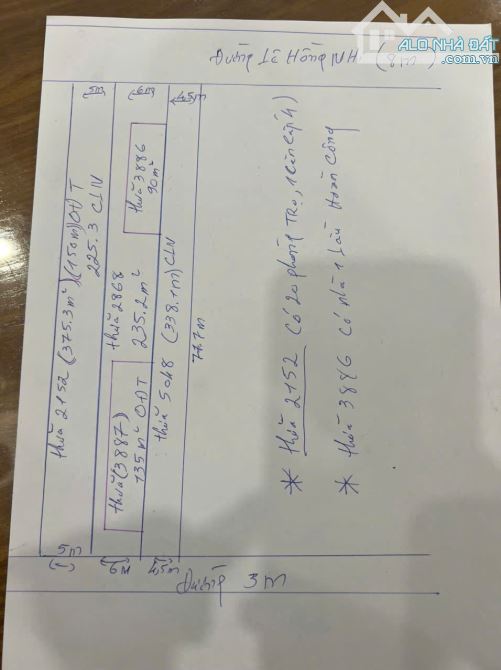 ALO NHÀ ĐẤT
.com.vn
5m
6m
4,5m
thửa 2152 (375.3m²) (150m) OĐT
225.3 CLN
thửa (3887)
135m² OĐT
thửa 2868
235.2m²
thửa 3886
90m²
thửa 5048 (338.1m) CLN
77.7m
5m
6m
4,5m
Đường 3m
* thửa 2152 có 20 phòng TRọ, 1 căn cấp 4)
* thửa 3886 có nhà 1 lầu Hoàn Công